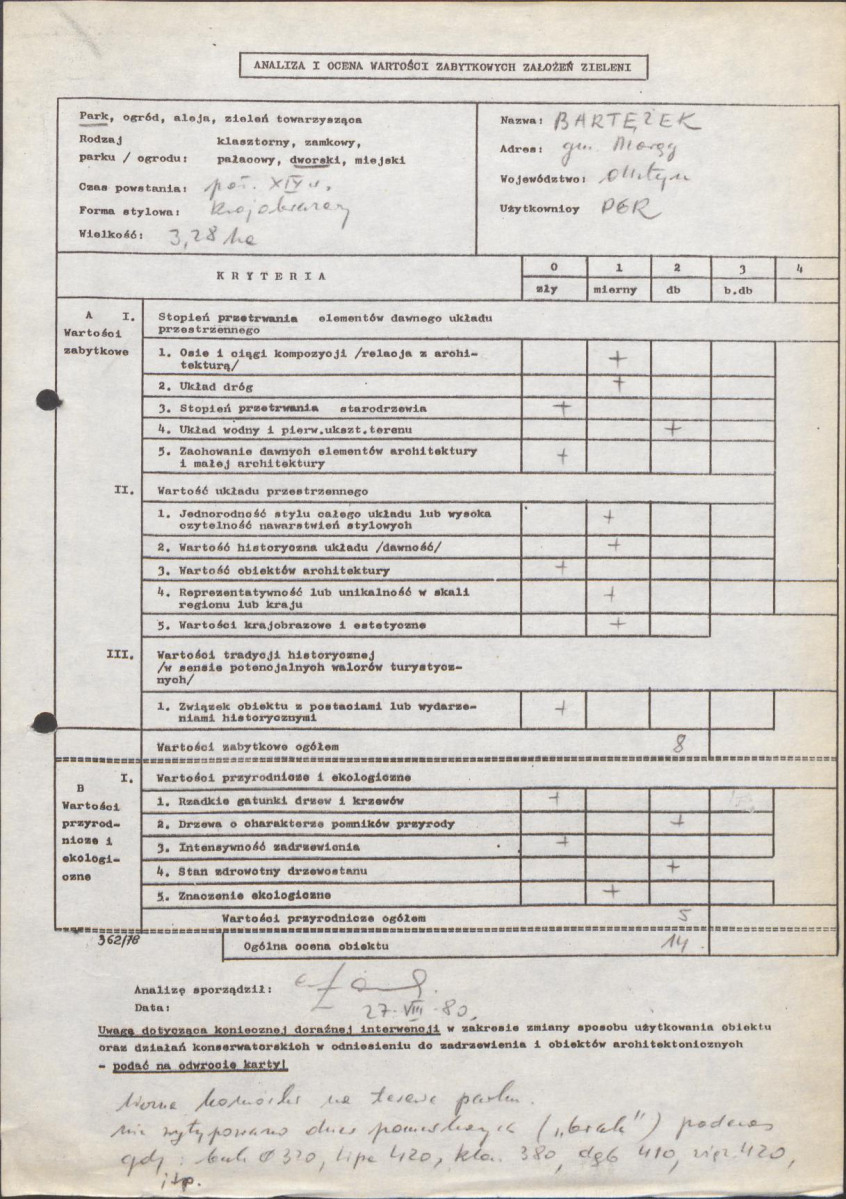 ANALIZA I OCENA WARTOŚCI ZABYTKOWYCH ZAŁOŻEŃ ZIELENI
Park, ogród, aleja, zieleń towarzysząca
Rodzaj klasztorny, zamkowy,
parku / ogrodu: pałacowy, dworski, miejski
Czas powstania: poł. XIX w.
Forma stylowa: krajobrazowy
Wielkość: 3,28 ha
Nazwa: BARTĘŻEK
Adres: gm. Morąg
Województwo: Olsztyn
Użytkownicy PGR
KRYTERIA
0 1 2 3 4
zły mierny db b.db
A I. Stopień przetrwania elementów dawnego układu
Wartości przestrzennego
zabytkowe
1. Osie i ciągi kompozycji /relacja z archi-
tekturą/ +
2. Układ dróg +
3. Stopień przetrwania starodrzewia +
4. Układ wodny i pierw.ukszt.terenu +
5. Zachowanie dawnych elementów architektury
i małej architektury +
II. Wartość układu przestrzennego
1. Jednorodność stylu całego układu lub wysoka
czytelność nawarstwień stylowych +
2. Wartość historyczna układu /dawność/ +
3. Wartość obiektów architektury +
4. Reprezentatywność lub unikalność w skali
regionu lub kraju +
5. Wartości krajobrazowe i estetyczne +
III. Wartości tradycji historycznej
/w sensie potencjalnych walorów turystycz-
nych/
1. Związek obiektu z postaciami lub wydarze-
niami historycznymi +
Wartości zabytkowe ogółem 8
B I. Wartości przyrodnicze i ekologiczne
Wartości
przyrod-
nicze i
ekologi-
czne
1. Rzadkie gatunki drzew i krzewów +
2. Drzewa o charakterze pomników przyrody +
3. Intensywność zadrzewienia +
4. Stan zdrowotny drzewostanu +
5. Znaczenie ekologiczne +
Wartości przyrodnicze ogółem 5
362/78
Ogólna ocena obiektu 14.
Analizę sporządził:
Data: 27.VIII.80.
Uwagę dotycząca koniecznej doraźnej interwencji w zakresie zmiany sposobu użytkowania obiektu
oraz działań konserwatorskich w odniesieniu do zadrzewienia i obiektów architektonicznych
- podać na odwrocie karty!
na terenie parku.
nie wytypowano drzew pomnikowych („brak") podczas
gdy: buk Ø 320, lipa 420, klon 380, dąb 410, wiąz 420,
itp.